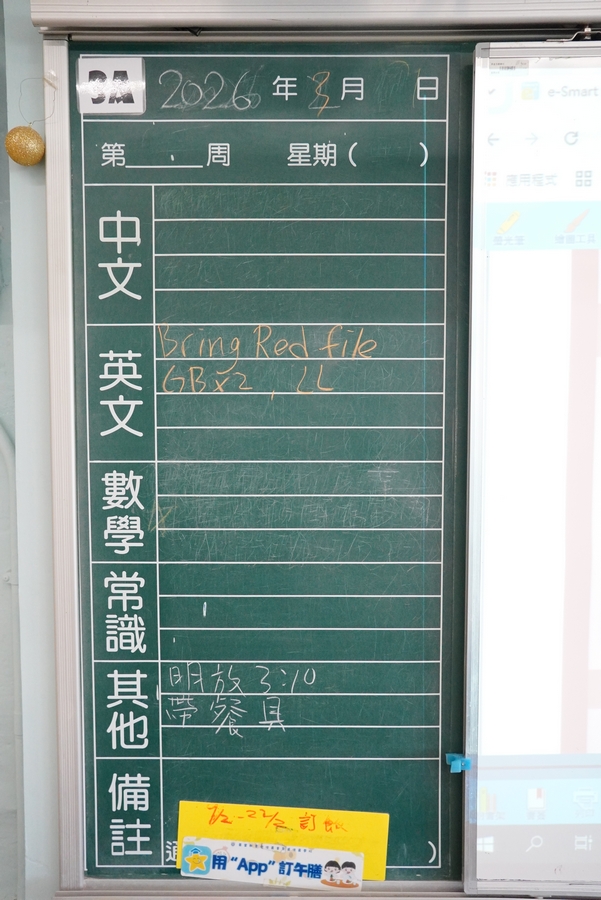 3A 2026 年 月 日
第 周 星期( )
中文
英文
Bring Red file
GB x2 , LL
數學
常識
其他
明放 3:10
帶餐具
備註
訂飯
)
用“App”訂午膳
e-Smart
應用程式
螢光筆
繪圖工具